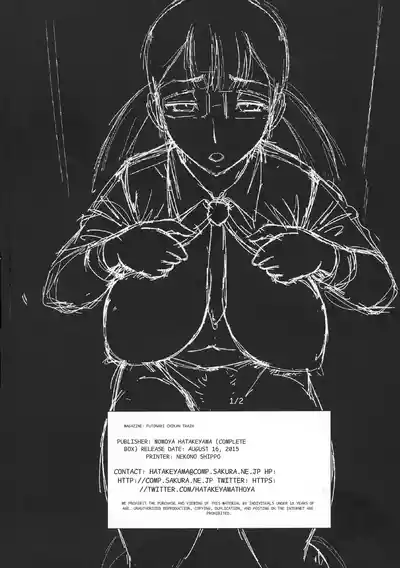 1/2
MAGAZINE: FUTUNARI CHIKAN TAKEN
PUBLISHER: MOMOYA HATAKEYAMA (COMPLETE
BOX) RELEASE DATE: AUGUST 16, 2015
PRINTER: NEKONO SHIPPO
CONTACT: HATAKEYAMA@COMP.SAKURA.NE.JP HP:
HTTP://COMP.SAKURA.NE.JP TWITTER: HTTPS:
//TWITTER.COM/HATAKEYAMATHOYA
WE PROHIBIT THE PURCHASE AND VIEWING OF THIS MATERIAL BY INDIVIDUALS UNDER 18 YEARS OF
AGE. UNAUTHORIZED REPRODUCTION, COPYING, DUPLICATION, AND POSTING ON THE INTERNET ARE
PROHIBITED.